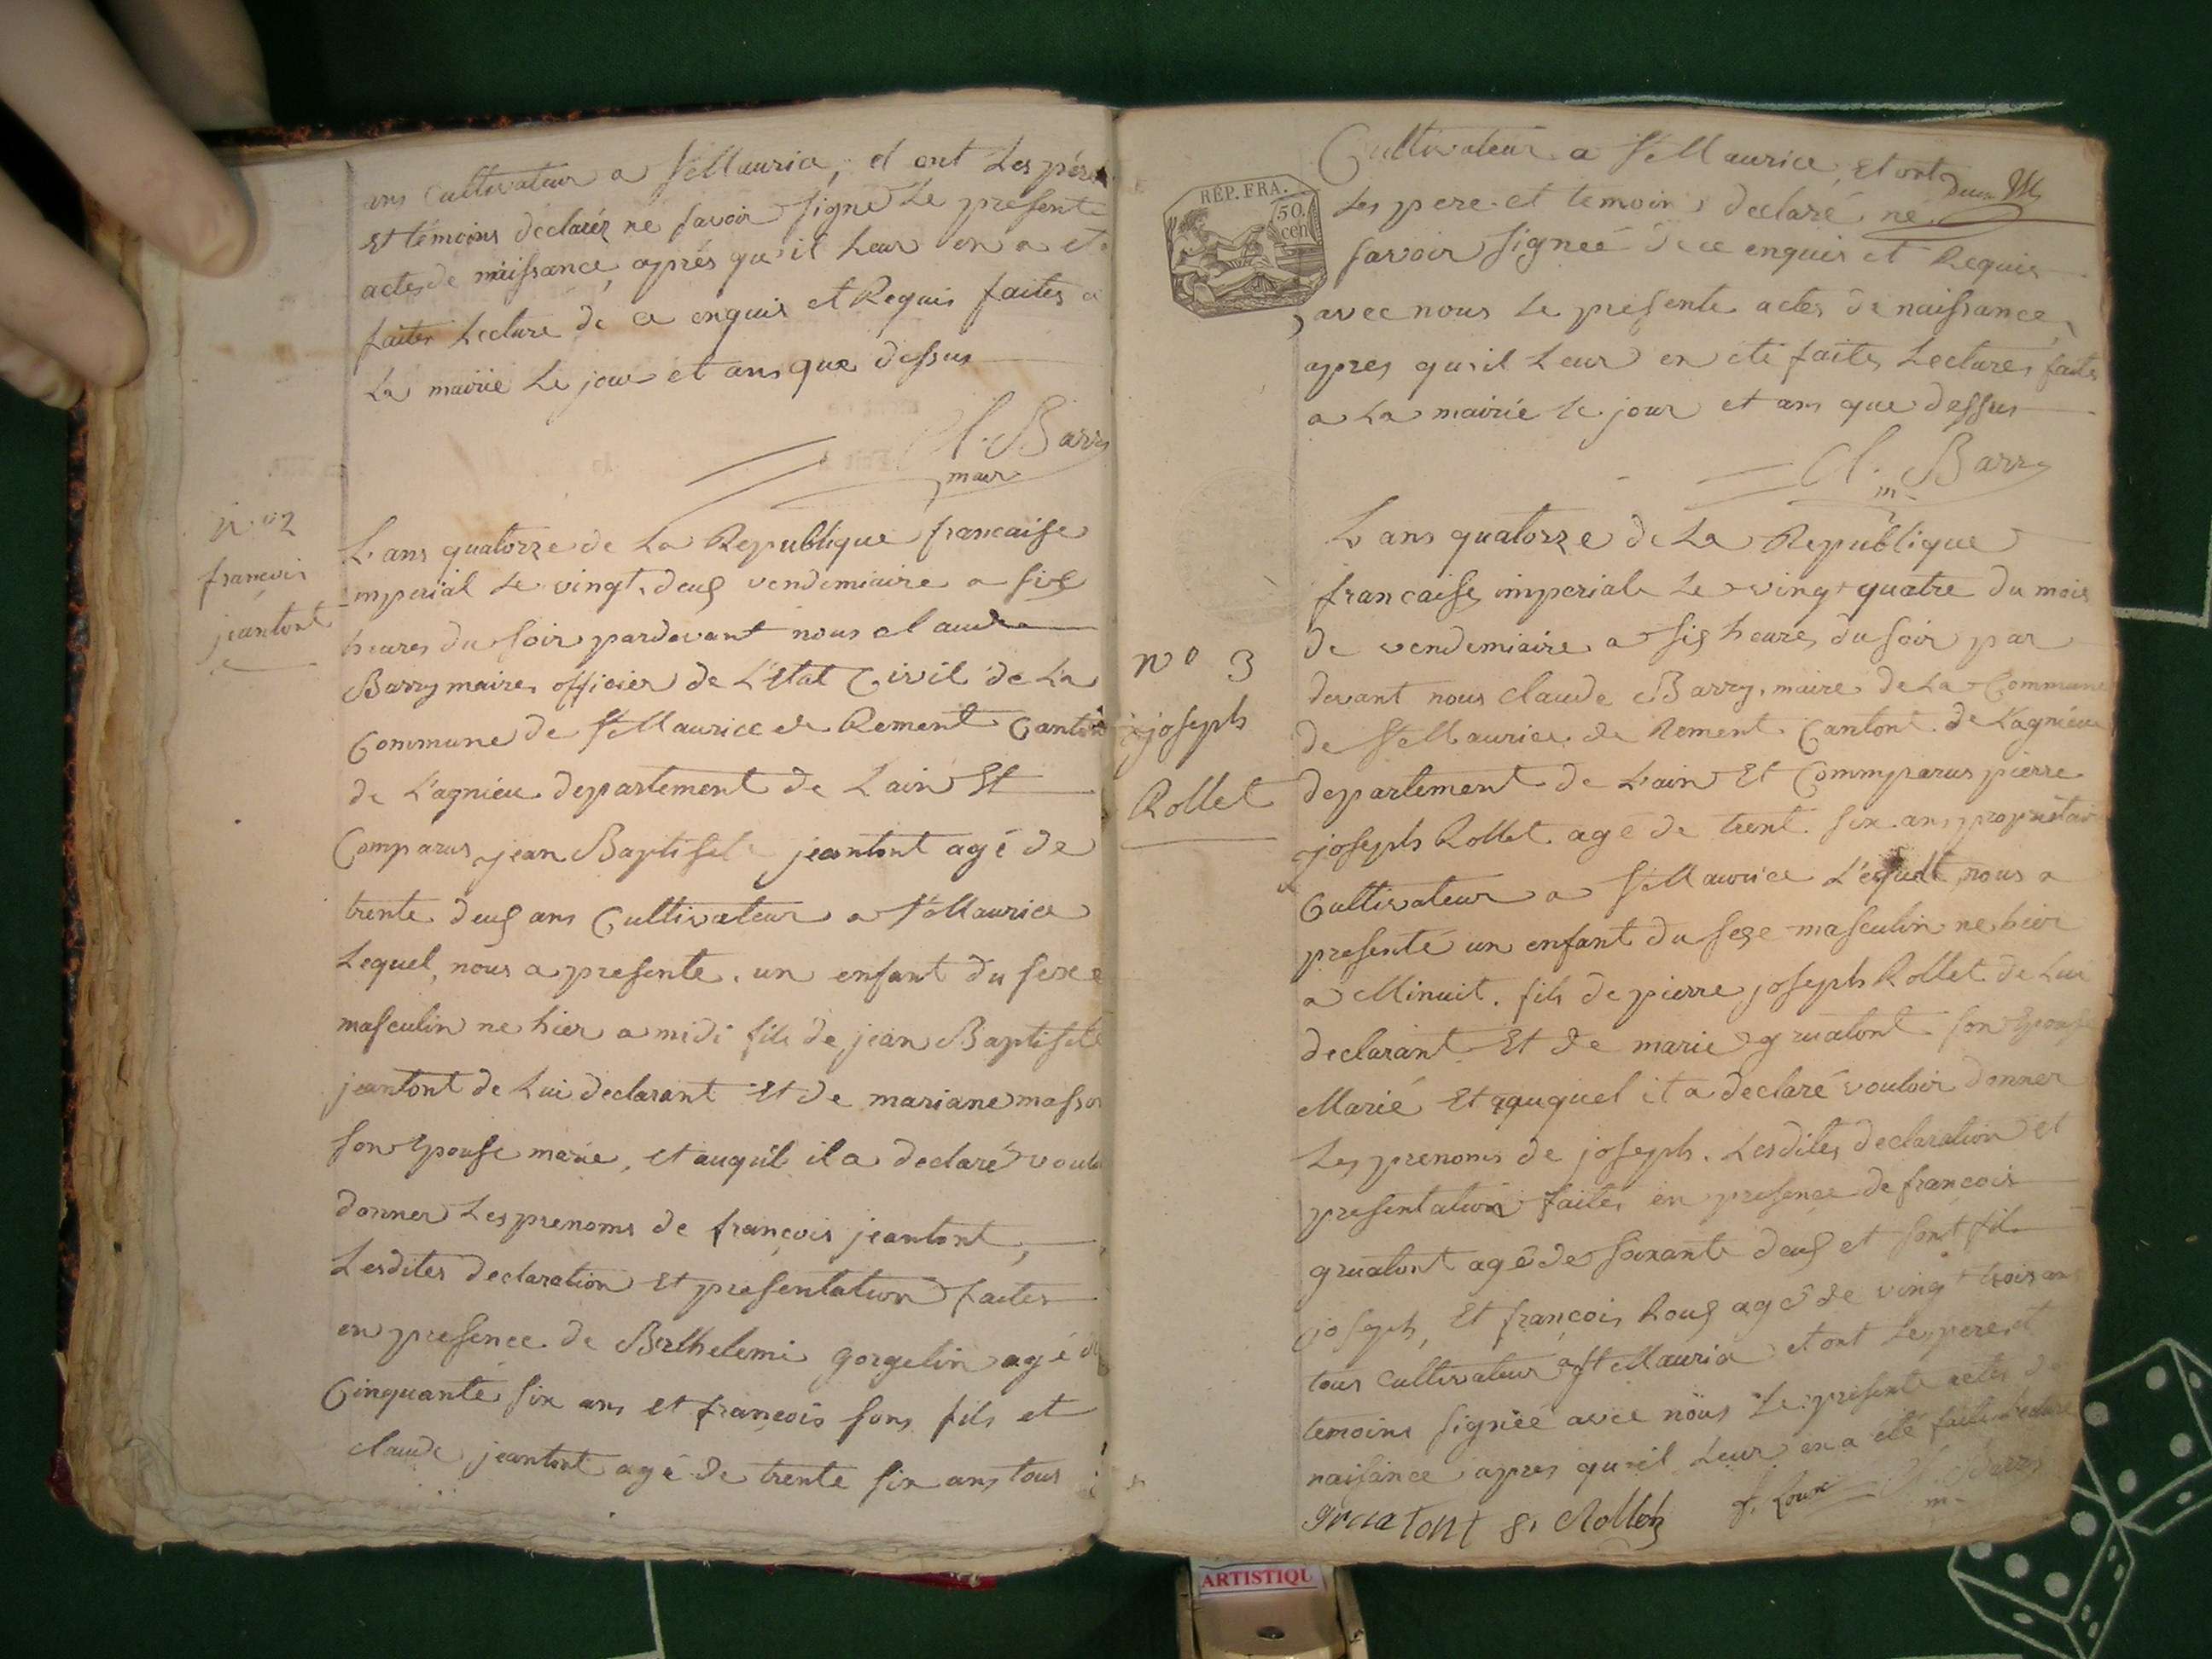 ans Cultivateur a St Maurice, et ont Les pére
Et témoins declaréz né savoir signé Le presente
actes de naissance, aprés qu'il Leur en a eté
faites Lecture de ce enquis et Requis faites a
La mairie Le jour et ans que dessus
Cl. Barry
mair
n° 2
francois
jeantont
L'ans quatorze de La Republique francaise
imperial Le vingt deus vendemiaire a six
heures du soir pardevant nous claude
Barry maire, officier de L'Etat Civil de La
Commune de St Maurice de Rement Canton
de L'agnieu departement de L'ain Et
Comparus jean Baptiste jeantont agé de
trente deus ans Cultivateur a St Maurice
Lequel, nous a presente. un enfant du sexe
masculin ne hier a midi fils de jean Baptiste
jeantont de Lui declarant Et de mariane masson
son Epouse marie, et auquel il a declaré voulo
donner Les prenoms de françois jeantont,
Lesdites declaration Et presentation faites
en presence de Berthelemi gorgelin agé de
Cinquante six ans et françois sons fils et
claude jeantont agé de trente six ans tous
REP. FRA.
50.
cen
Cultivateur a St Maurice, Et ont
Les pere et temoins declaré, né
savoir signeé de ce enquis et Requis
avec nous Le presente actes de naissance,
apres qu'il Leur en eté faites Lectures, faites
a La mairie le jour et ans que dessus
Cl. Barry
m
L'ans quatorze de La Republique
francaise imperiale Le vingt quatre du mois
de vendemiaire a sis heures du soir par
devant nous claude Barry, maire de La Commune
de St Maurice de Rement Cantont de L'agnieu
departement de L'ain Et Commparus pierre
joseph Rollet agé de trent six ans propriétair
Cultivateur a St Maurice L'equelt nous a
presenté un enfant du sexe masculin ne hier
a Minuit. fils de pierre joseph Rollet de Lui
declarant Et de marie gruatont son Epouse
Marié Et auquel il a declaré vouloir donner
Les prenoms de joseph. Lesdites declaration et
presentation faites en presence de francois
gruatont agé de soixante deus et sont fil
joseph, Et françois Rous agé de vingt trois ans
tous cultivateur a St Maurice et ont Les pere et
temoins signée avec nous Le presente actes de
naisance apres qu'il Leur en a eté faites Lecture
gruatont Rollet f. Roux Cl. Barry
m
n° 3
joseph
Rollet
ARTISTIQU